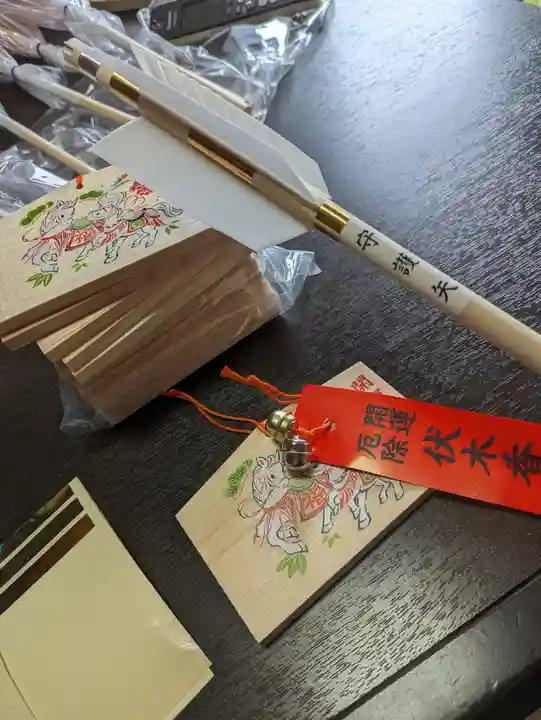 守護矢
開運
厄除
伏木香
開